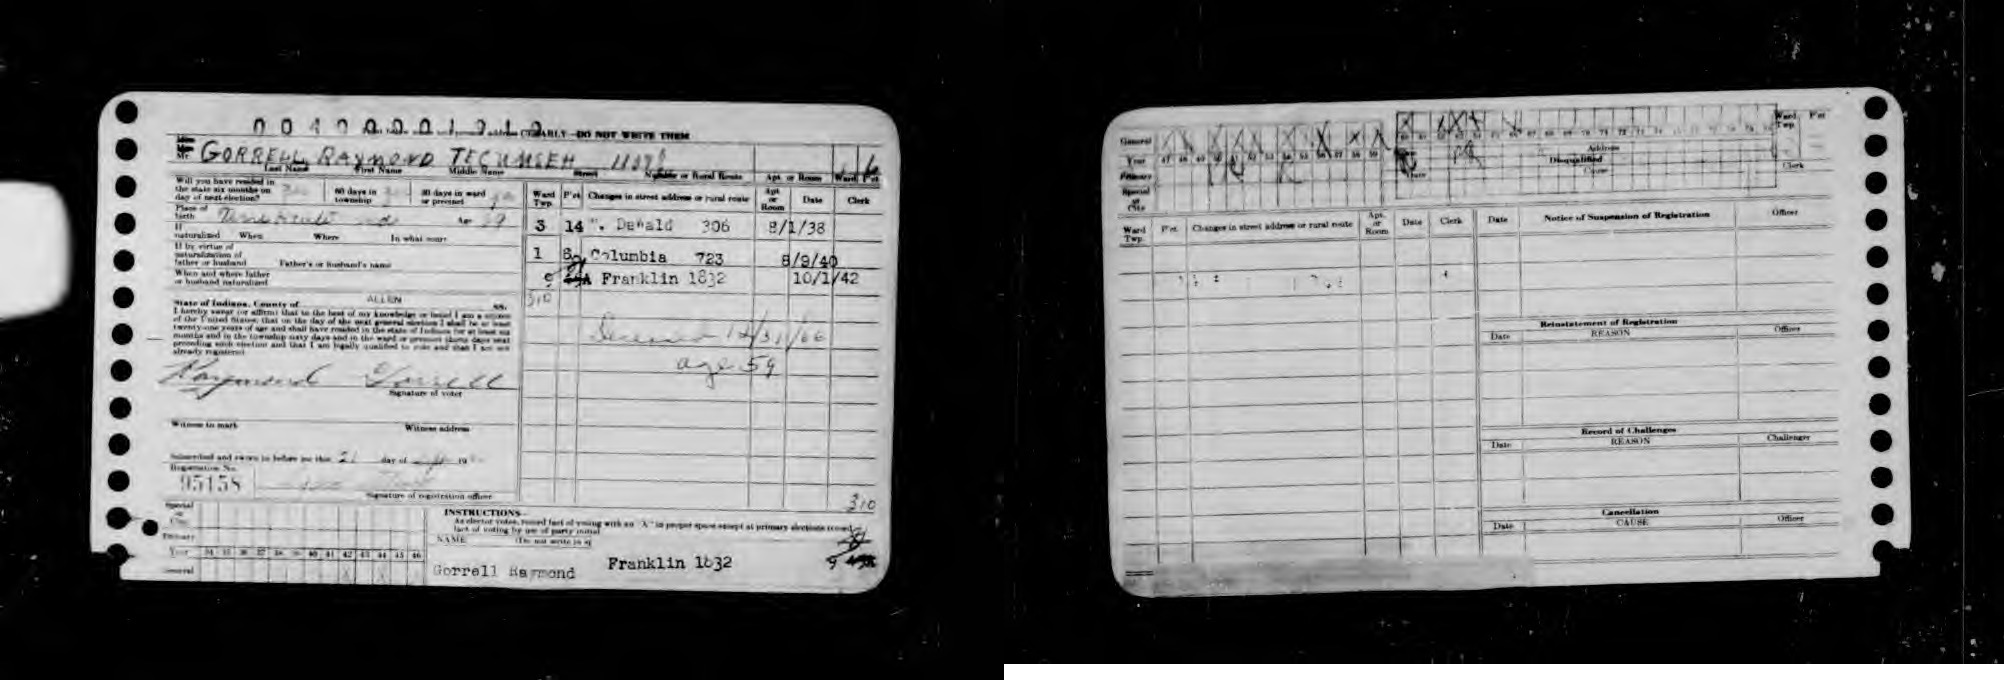 CLEARLY—DO NOT WRITE THEM
Mr. GORRELL RAYMOND TECUMSEH
Last Name First Name Middle Name Street Number or Rural Route Apt. or Room Ward P'ct
Will you have resided in
the state six months on
day of next election?
60 days in
township
30 days in ward
or precinct
Ward
Twp.
P'ct
Changes in street address or rural route
Apt.
or
Room
Date
Clerk
Place of
birth
Age
3 14 DeWald 306 8/1/38
If
naturalized When Where In what court
If by virtue of
naturalization of
father or husband Father's or husband's name
1 Columbia 723 8/9/40
When and where father
or husband naturalized
Franklin 1832 10/1/42
310
State of Indiana, County of ALLEN ss.
I hereby swear (or affirm) that to the best of my knowledge or belief I am a citizen
of the United States; that on the day of the next general election I shall be at least
twenty-one years of age and shall have resided in the state of Indiana for at least six
months and in the township sixty days and in the ward or precinct thirty days next
preceding such election and that I am legally qualified to vote and that I am not
already registered.
Deceased 12/31/66
age 59
Raymond Gorrell
Signature of voter
Witness to mark Witness address
Subscribed and sworn to before me this 21 day of Sept 19
Registration No.
95158
Signature of registration officer
310
Special
or
City
Primary
Year 34 35 36 37 38 39 40 41 42 43 44 45 46
General
INSTRUCTIONS—
As elector votes, record fact of voting with an "X" in proper space except at primary elections record
fact of voting by use of party initial
NAME (Do not write in)
Gorrell Raymond Franklin 1832
9
General
Year 47 48 49 50 51 52 53 54 55 56 57 58 59
Primary
Special
or
City
Address
Disqualified
Date Cause
Ward
Twp.
P'ct
Clerk
Ward
Twp.
P'ct.
Changes in street address or rural route
Apt.
or
Room
Date
Clerk
Date Notice of Suspension of Registration Officer
Reinstatement of Registration
Date REASON Officer
Record of Challenges
Date REASON Challenger
Cancellation
Date CAUSE Officer